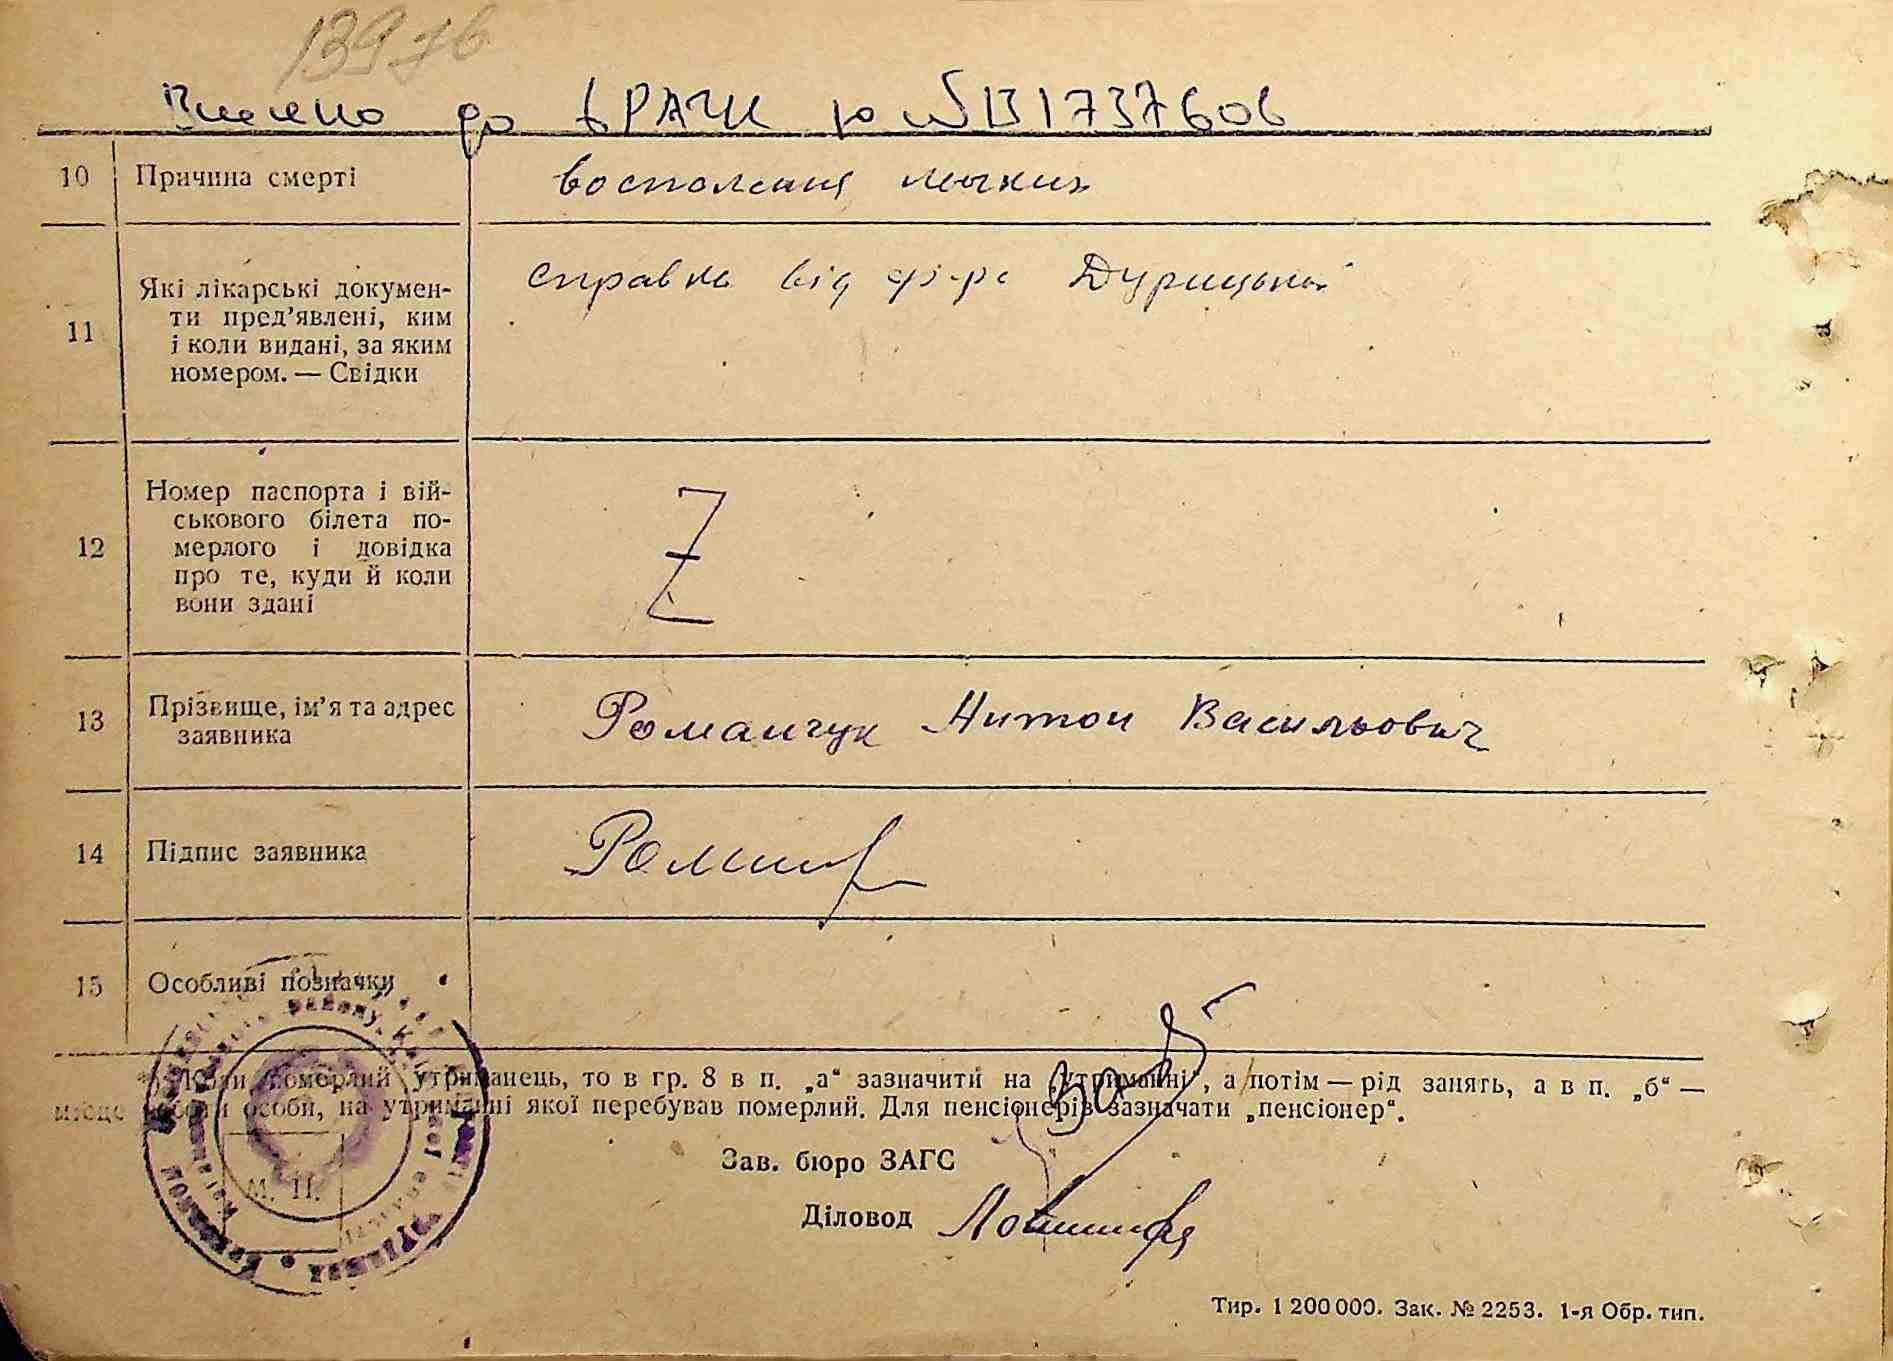 139 зв
Внесено до ДРАЦС за № 131737606
10 Причина смерті
воспаления легких
11 Які лікарські докумен-
ти пред’явлені, ким
і коли видані, за яким
номером. — Свідки
справка від ф-ра
12 Номер паспорта і вій-
ськового білета по-
мерлого і довідка
про те, куди й коли
вони здані
Z
13 Прізвище, ім’я та адрес
заявника
Романчук Антон Васильович
14 Підпис заявника
15 Особливі позначки
*) Коли померлий утриманець, то в гр. 8 в п. „а“ зазначити на „утриманні“, а потім — рід занять, а в п. „б“ —
місце роботи особи, на утриманні якої перебував померлий. Для пенсіонерів зазначати „пенсіонер“.
Зав. бюро ЗАГС
Діловод
М. П.
Тир. 1 200 000. Зак. № 2253. 1-я Обр. тип.